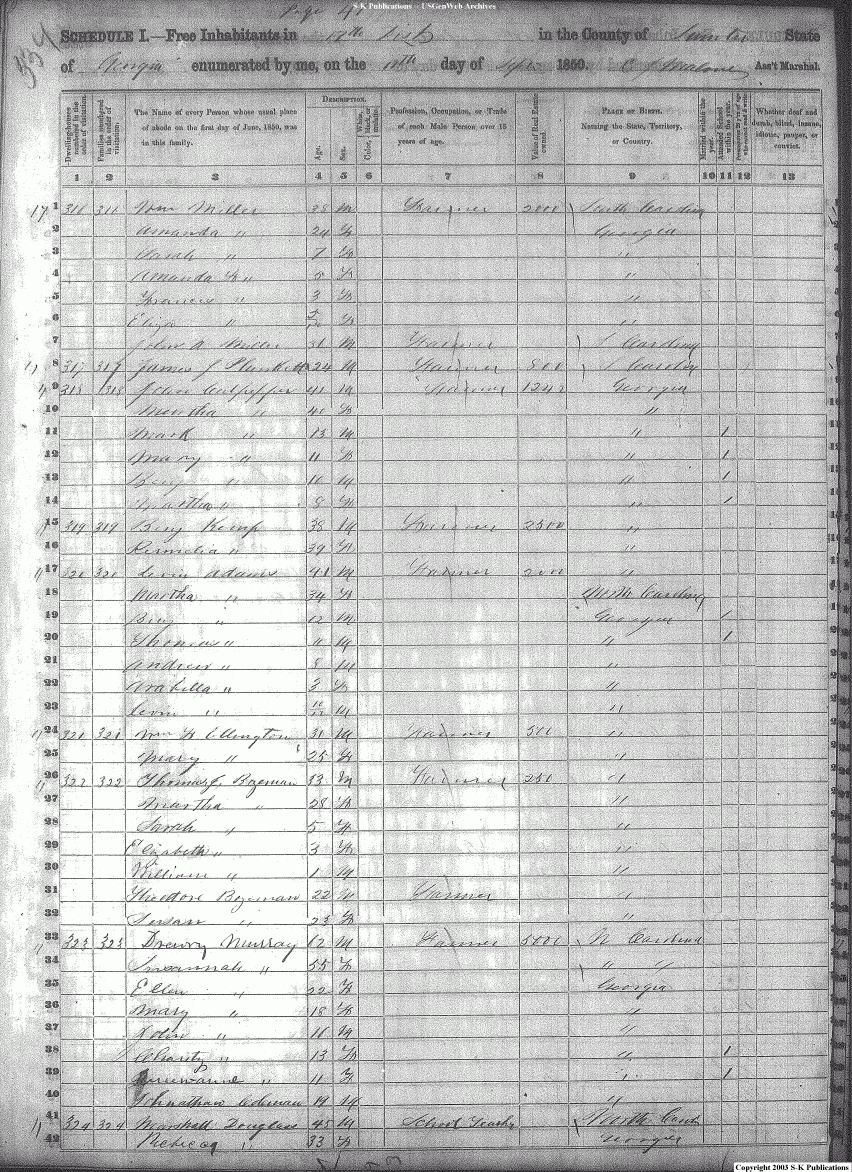 S-K Publications - USGenWeb Archives
Page 41
334
SCHEDULE I.—Free Inhabitants in in the County of Sumter State
of Georgia enumerated by me, on the day of Sept 1850. Ass't Marshal.
Dwelling-houses numbered in the order of visitation.
Families numbered in the order of visitation.
The Name of every Person whose usual place of abode on the first day of June, 1850, was in this family.
DESCRIPTION.
Age.
Sex.
White, Black, or mulatto.
Profession, Occupation, or Trade of each Male Person over 15 years of age.
Value of Real Estate owned
PLACE OF BIRTH. Naming the State, Territory, or Country.
Married within the year.
Attended School within the year.
Whether deaf and dumb, blind, insane, idiotic, pauper, or convict.
1 2 3 4 5 6 7 8 9 10 11 12 13
1 316 316 Wm Miller 38 M Farmer 2000 South Carolina
2 Amanda " 24 F Georgia
3 Sarah " 7 F "
4 Amanda F " 5 F "
5 Frances " 3 F "
6 Eliza " F "
7 John A Miller 31 M Farmer S Carolina
8 317 317 James J Plunkett 24 M Farmer 800 S Carolina
9 318 318 John Culpepper 41 M Farmer Georgia
10 Martha " 40 F "
11 Mark " 13 M " 1
12 Mary " 11 F " 1
13 Benj " 10 M " 1
14 Martha " 8 F " 1
15 319 319 Benj Kemp 38 M Farmer 2500 "
16 " 39 F "
17 320 320 Levin Adams 41 M Farmer 2000 "
18 Martha " 34 F North Carolina
19 Benj " 12 M Georgia 1
20 Thomas " 11 M " 1
21 Andrew " 8 M "
22 Arabella " 3 F "
23 Levin " M "
24 321 321 Wm H Ellington 31 M Farmer 500 "
25 Mary " 25 F "
26 322 322 Thomas J. Bozeman 33 M Farmer 250 "
27 Martha " 28 F "
28 Sarah " 5 F "
29 Elizabeth " 3 F "
30 William " 1 M "
31 Bozeman 22 M Farmer "
32 Susan " 23 F "
33 323 323 Drewry Murray 62 M Farmer 5000 N Carolina
34 Susannah " 55 F " "
35 Ellen " 22 F Georgia
36 Mary " 18 F "
37 " 16 M "
38 Charity " 13 F " 1
39 " 11 F " 1
40 Johnathan Coleman 19 M "
41 324 324 Marshall Douglass 45 M School Teacher North Carol
42 Rebecca " 33 F Georgia
Copyright 2003 S-K Publications